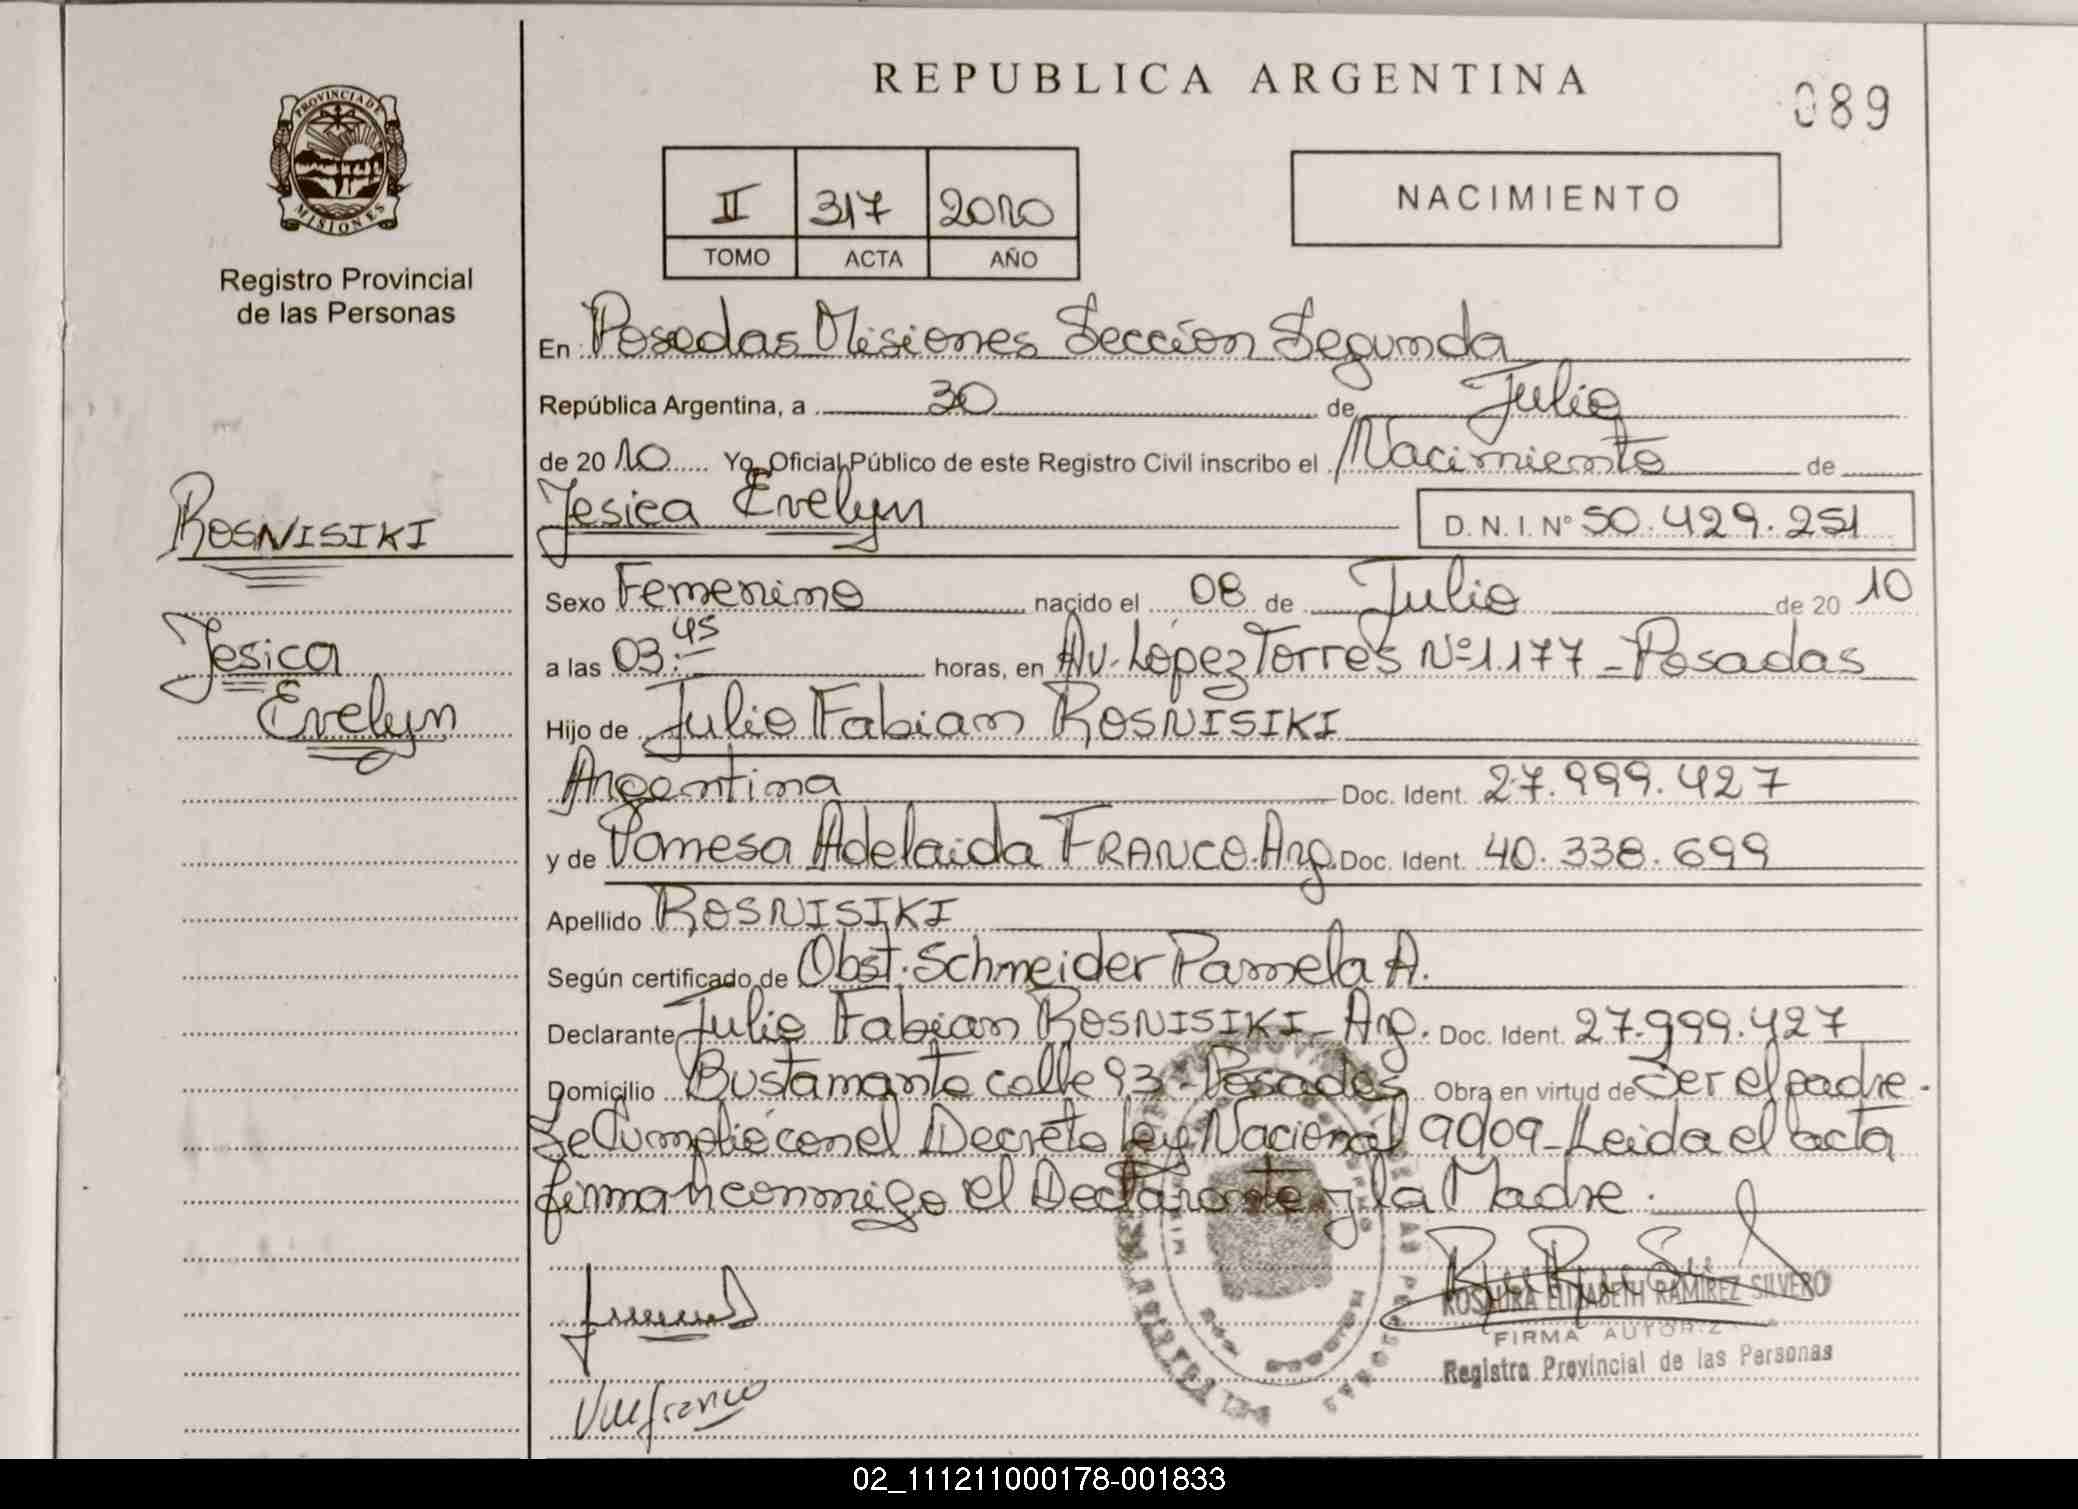 REPUBLICA ARGENTINA
089
PROVINCIA DE
MISIONES
Registro Provincial
de las Personas
II 317 2010
TOMO ACTA AÑO
NACIMIENTO
En Posadas Misiones Sección Segunda
República Argentina, a 30 de Julio
de 2010 Yo, Oficial Público de este Registro Civil inscribo el Nacimiento de
ROSNISIKI
Jesica Evelyn D. N. I. Nº 50.429.251
Sexo Femenino nacido el 08 de Julio de 2010
Jesica
Evelyn
a las 03:45 horas, en Av. López Torres Nº 1.177 - Posadas
Hijo de Julio Fabian ROSNISIKI
Argentina Doc. Ident. 27.999.427
y de Vanesa Adelaida FRANCO. Arg. Doc. Ident. 40.338.699
Apellido ROSNISIKI
Según certificado de Obst. Schneider Pamela A.
Declarante Julio Fabian ROSNISIKI - Arg. Doc. Ident. 27.999.427
Domicilio Bustamante calle 93 - Posadas Obra en virtud de Ser el padre.
Se Cumplió con el Decreto ley Nacional 9009 - Leida el acta
firman conmigo el Declarante y la Madre.
ROSAURA ELIZABETH RAMIREZ SILVERO
FIRMA AUTORIZ
Registro Provincial de las Personas
VAFranco
02_111211000178-001833